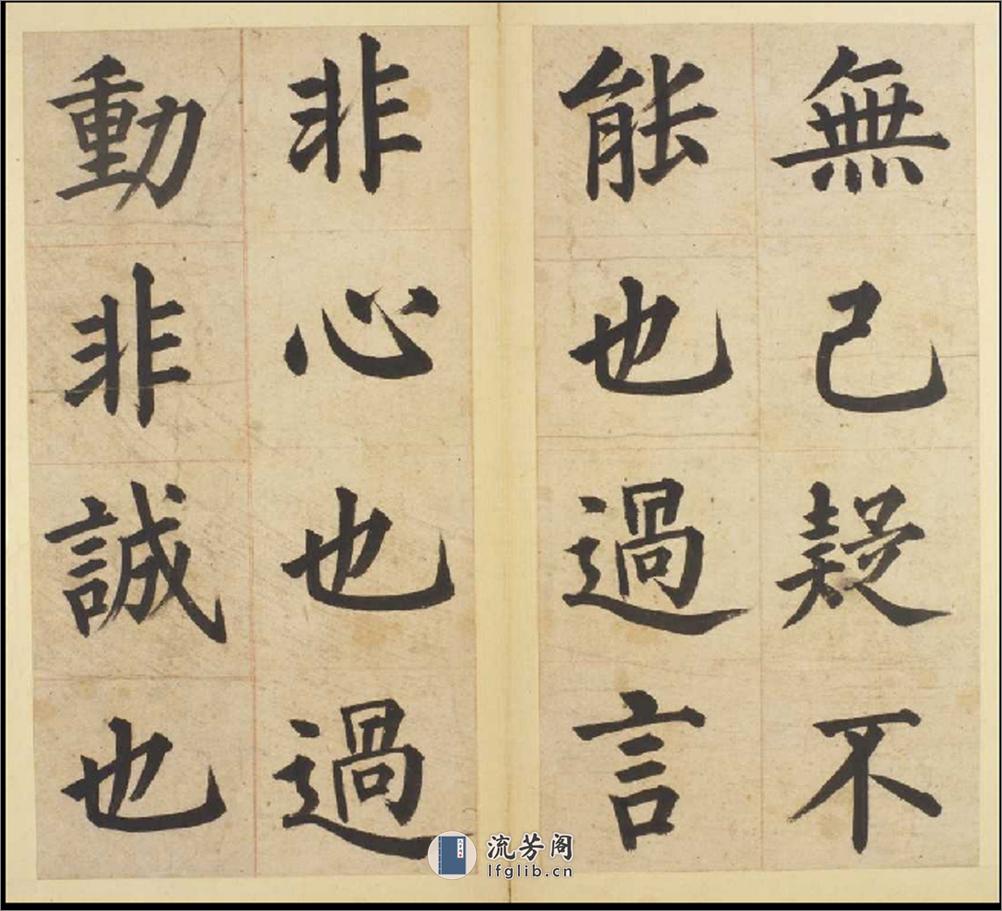 無己疑不
能也過言
非心也過
動非誠也
流芳阁
lfglib.cn